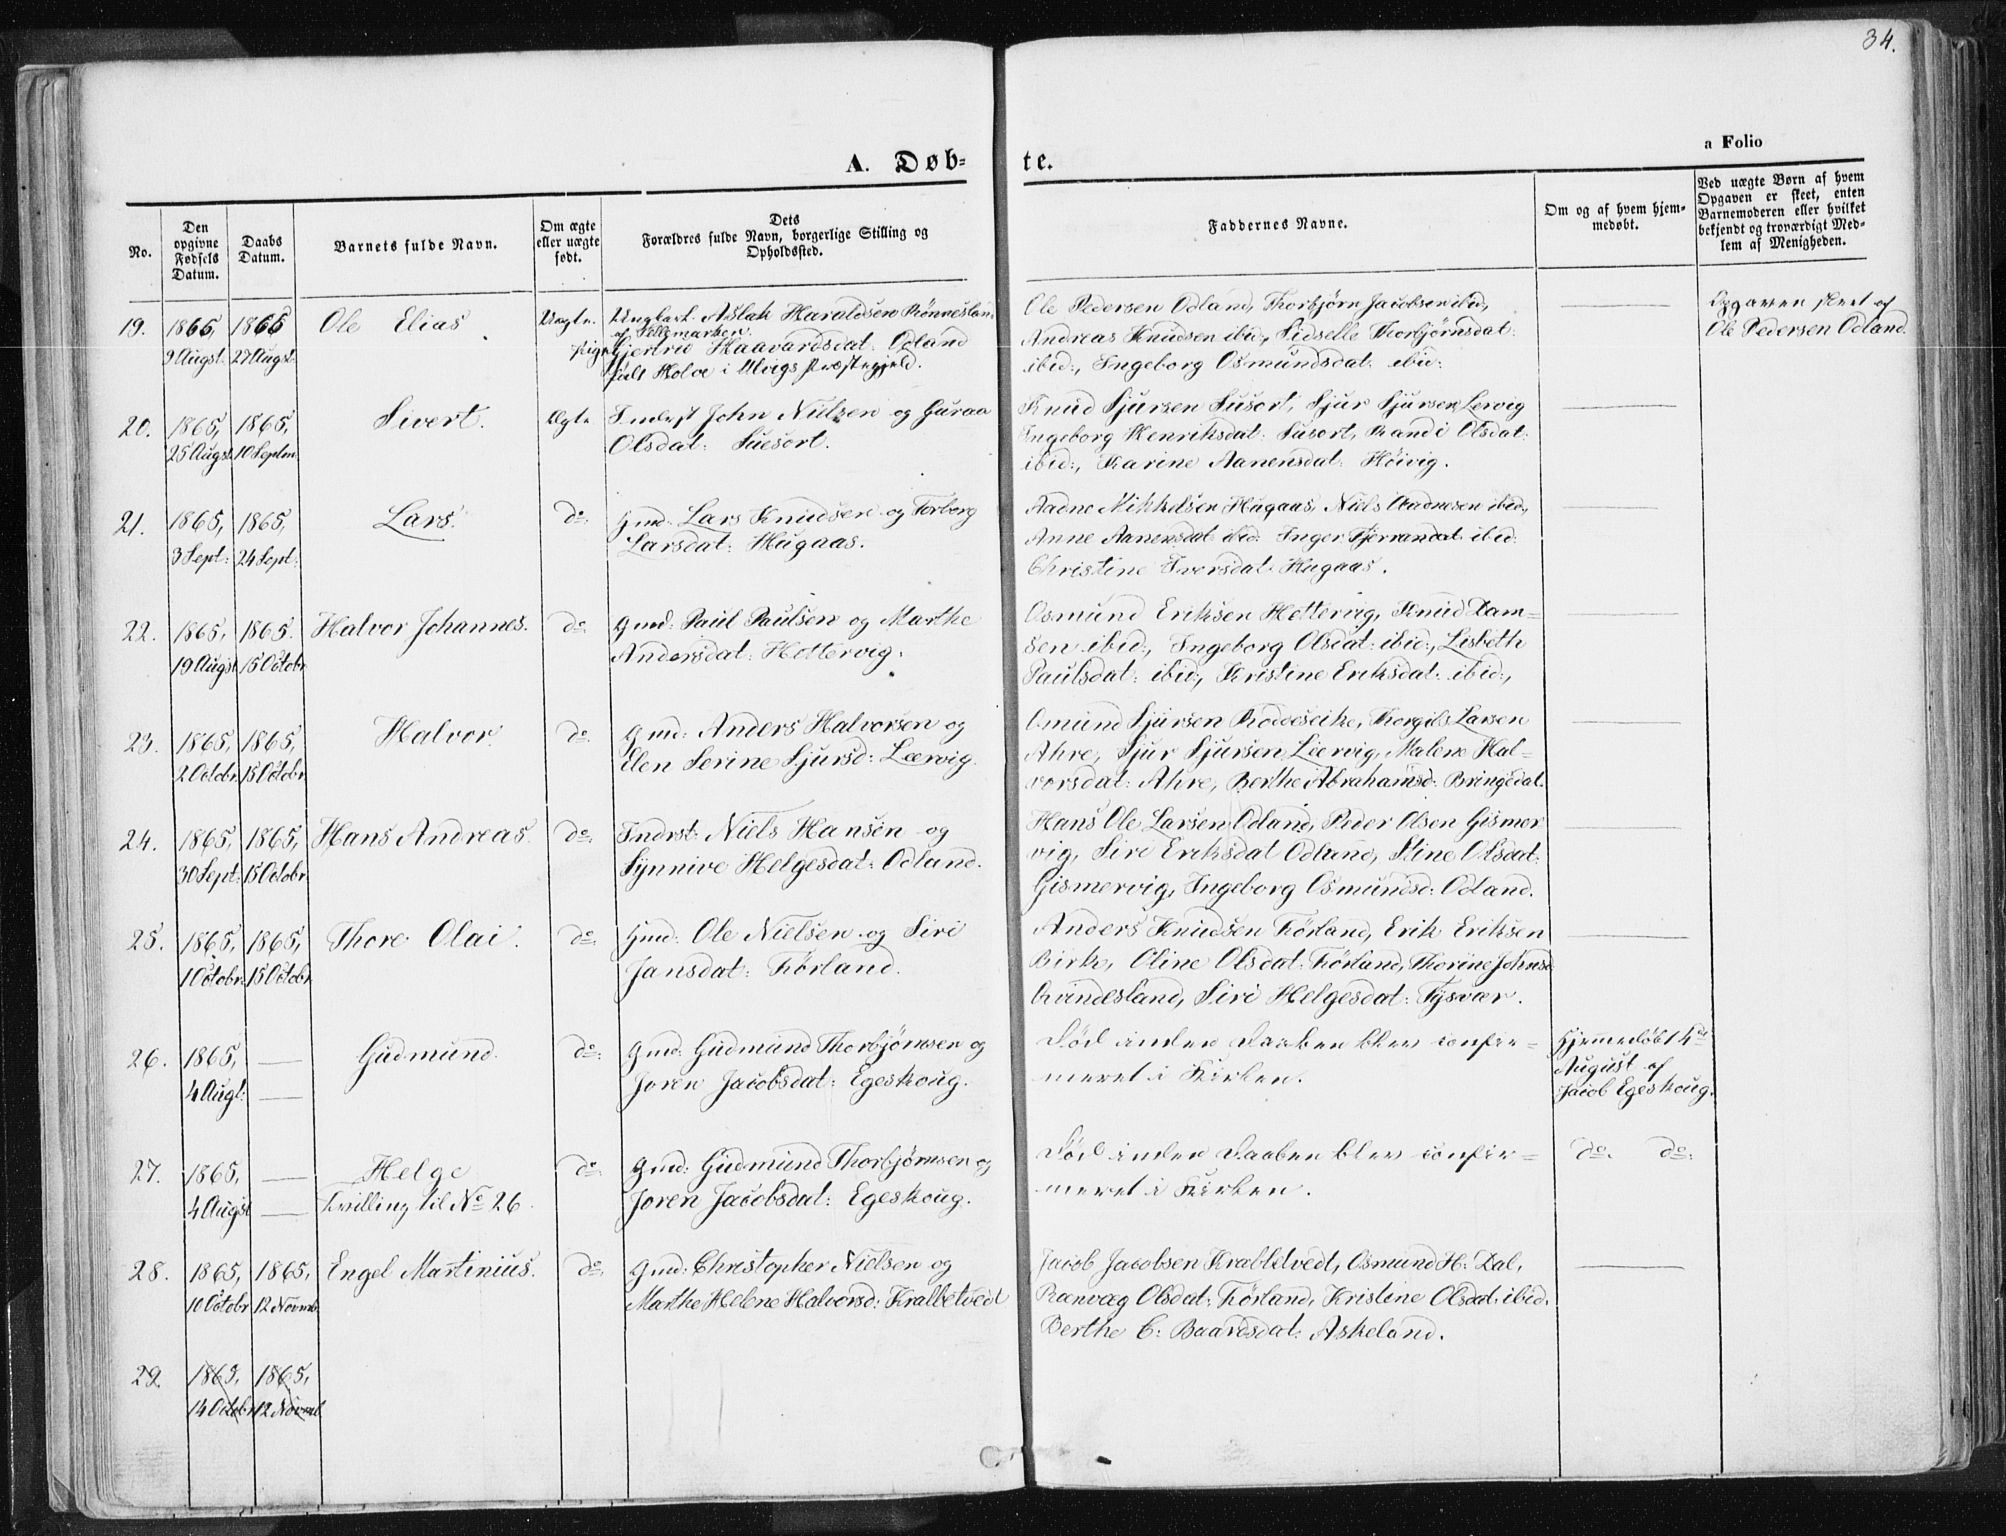 34.
a Folio
A. Døb-
te.
No.
Den opgivne Fødsels Datum.
Daabs Datum.
Barnets fulde Navn.
Om ægte eller uægte født.
Dets Forældres fulde Navn, borgerlige Stilling og Opholdssted.
Faddernes Navne.
Om og af hvem hjem-medøbt.
Ved uægte Børn af hvem Opgaven er skeet, enten Barnemoderen eller hvilket bekjendt og troværdigt Med-lem af Menigheden.
19.
1865,
9 Augst:
1865
27 Augst:
Ole Elias
Uægte.
Ungkarl: Aslak Haraldsen Rönnesland
af Tellemarken.
Pige Gjertrid Haavardsdat: Odland
født Holve i Ulvigs Præstegjeld.
Ole Pedersen Odland, Thorbjörn Jacobsen ibid,
Andreas Knudsen ibid, Sidselle Thorbjörnsdat:
ibid:, Ingeborg Osmundsdat: ibid:
Opgaven skeet af
Ole Pedersen Odland.
20.
1865,
25 Augst:
1865,
10 Septm.
Sivert.
Ægte
Inderst John Nielsen og Guraa
Olsdat: Suesort.
Knud Sjursen Susort, Sjur Sjursen Lervig
Ingeborg Henriksdat: Susort, Randi Olsdat:
ibid:, Karine Aanensdat: Höivig.
21.
1865,
3 Sept:
1865,
24 Sept:
Lars.
do.
Gmd: Lars Knudsen og Torborg
Larsdat: Hugaas.
Aadne Mikkelsen Hugaas, Niels Aadnesen ibid,
Anne Aanensdat: ibid: Inger Tjerrandat: ibid:
Christine Iversdat: Hugaas.
22.
1865,
19 Augst
1865.
15 Octobr
Halvor Johannes.
do.
Gmd: Paul Paulsen og Marthe
Andersdat: Hettervig.
Osmund Eriksen Hettervig, Knud Dam=
sen ibid:, Ingeborg Olsdat: ibid:, Lisbeth
Paulsdat: ibid:, Kristine Eriksdat: ibid:,
23.
1865,
2 Octobr.
1865,
15 Octobr.
Halvor.
do.
Gmd: Anders Halvorsen og
Elen Serine Sjursd: Lærvig.
Osmund Sjursen Roddeseike, Thorgils Larsen
Ahre, Sjur Sjursen Lærvig, Malene Hal=
vorsdat: Ahre, Berthe Abrahamsd: Bringedal.
24.
1865,
30 Sept:
1865,
15 Octobr.
Hans Andreas.
do.
Indrst: Niels Hansen og
Synnive Helgesdat: Odland.
Hans Ole Larsen Odland, Peder Olsen Gismer
vig, Siri Eriksdat Odland, Stine Olsdat:
Gismervig, Ingeborg Osmundsd: Odland.
25.
1865,
1 Octobr.
1865,
15 Octobr.
Thore Olai.
do.
Gmd: Ole Nielsen og Siri
Jansdat: Förland.
Anders Knudsen Förland, Erik Eriksen
Birke, Oline Olsdat: Förland, Thorine Johnsd
Qvindesland, Siri Helgesdat: Tysvær.
26.
1865,
4 Augt:
Gudmund.
do.
Gmd: Gudmund Thorbjörnsen og
Joren Jacobsdat: Egeskoug.
Död inden Daaben blev confir=
meret i Kirken.
Hjemmedöbt 4de
August af
Jacob Egeskoug.
27.
1865,
4 Augst
Helge
Tvilling til No 26.
do.
Gmd: Gudmund Thorbjörnsen og
Joren Jacobsdat: Egeskoug.
Död inden Daaben blev confir=
meret i Kirken.
do. do:
28.
1865,
10 Octobr
1865,
12 Novmb.
Engel Martinius.
do.
Gmd: Christopher Nielsen og
Marthe Helene Halvorsd: Krabbetvedt
Jacob Jacobsen Krabbetvedt, Osmund H: Dal,
Rænvæg Olsdat: Förland, Kristine Olsdat: ibid.
Berthe C: Baardsdat: Askeland.
29.
1865,
14 Octobr.
1865,
12 Novmb